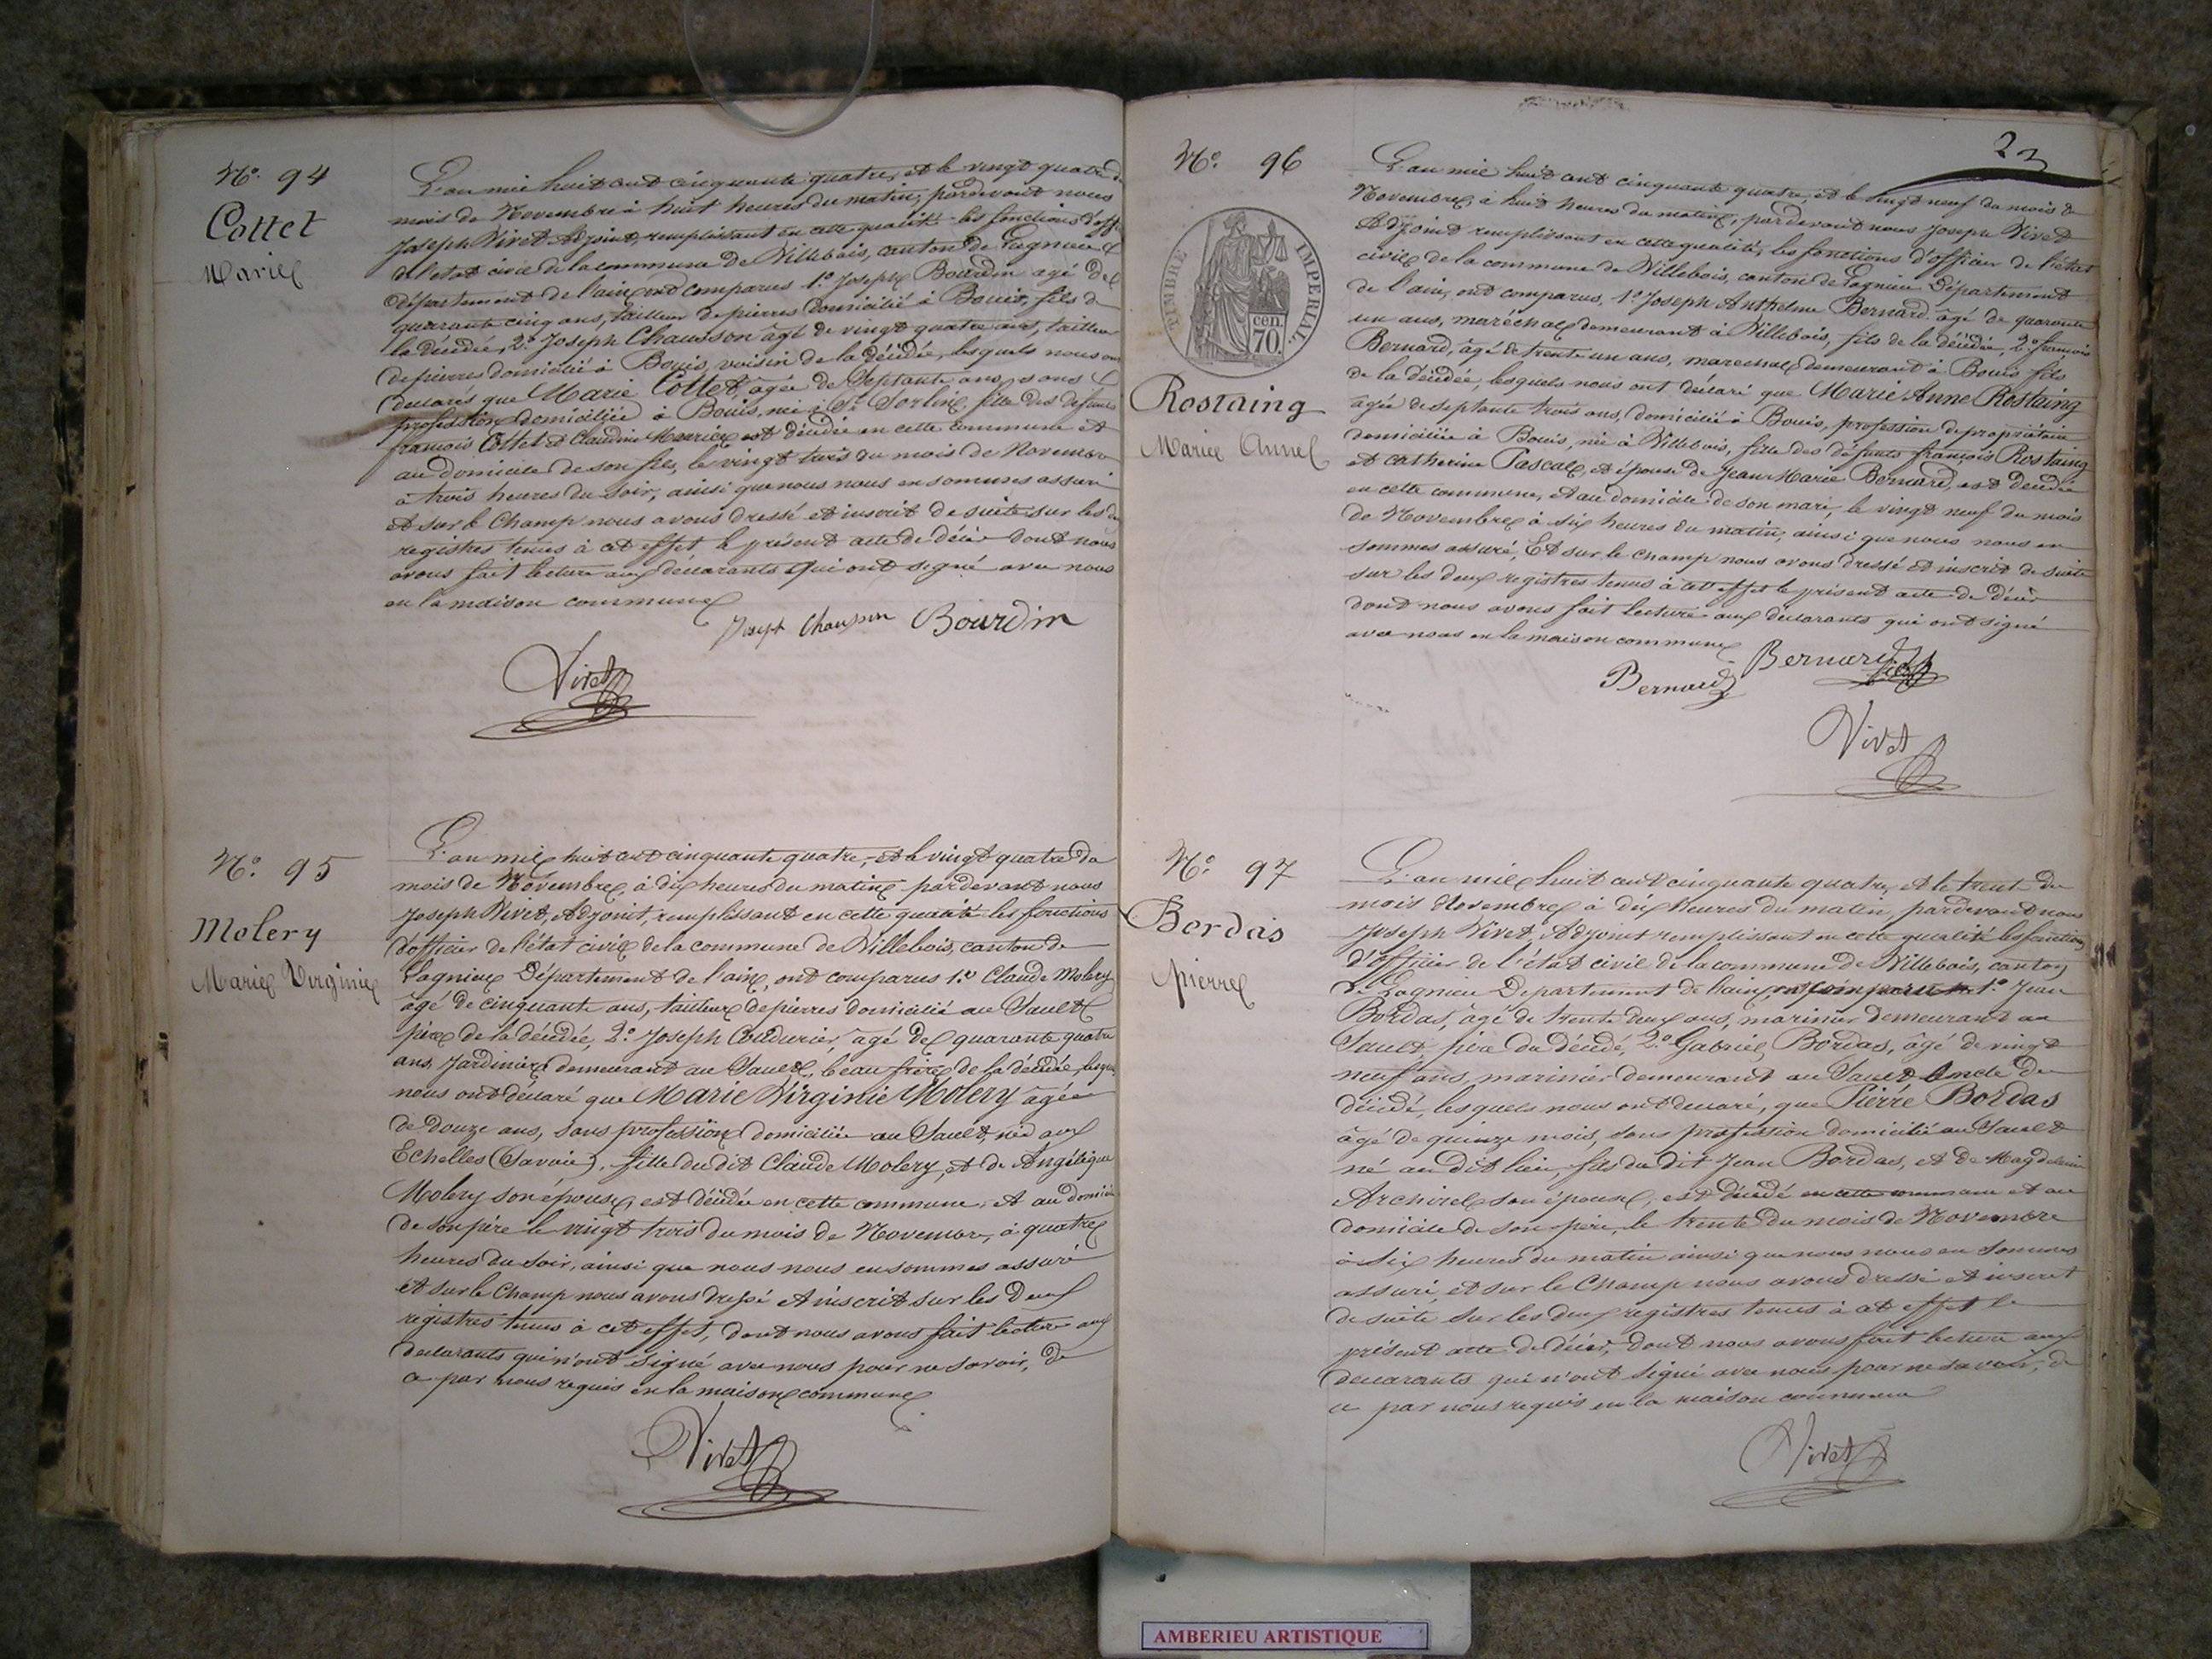 N° 94
Cottet
Marie
L'an mil huit cent cinquante quatre, et le vingt quatre du
mois de Novembre à huit heures du matin, pardevant nous
Joseph Vivet, Adjoint, remplissant en cette qualité les fonctions d'off.
de l'etat civil de la commune de Villebois, canton de Lagnieu
Département de l'ain, ont comparus 1° Joseph Bourdin agé de
quarante cinq ans, tailleur de pierres domicilié à Bouis, fils de
la décédée, 2° Joseph Chausson âgé de vingt quatre ans, tailleur
de pierres domicilié à Bouis, voisin de la décédée, lesquels nous ont
declarés que Marie Cottet, âgée de Septante ans, sans
profession domiciliée à Bouis, née à St Sorlin, fille des defunts
françois Cottet et Claudine est décédée en cette commune et
au domicile de son fils, le vingt trois du mois de Novembre
à trois heures du soir, ainsi que nous nous en sommes assuré
et sur le Champ nous avons dressé et inscrit de suite sur les
registres tenus à cet effet le présent acte de décès dont nous
avons fait lecture aux declarants qui ont signé avec nous
en la maison commune
Joseph Chausson Bourdin
Vivet
N° 95
Molery
Marie Virginie
L'an mil huit cent cinquante quatre, et le vingt quatre du
mois de Novembre, à dix heures du matin pardevant nous
Joseph Vivet, Adjoint, remplissant en cette qualité les fonctions
d'officier de l'état civil de la commune de Villebois, canton de
Lagnieu Département de l'ain, ont comparus 1° Claude Molery
âgé de cinquante ans, tailleur de pierres domicilié au Sault
père de la décédée, 2° Joseph Coudurier, agé de quarante quatre
ans, Jardinier demeurant au Sault, beau frère de la décédée, lesquels
nous ont déclaré que Marie Virginie Molery âgée
de douze ans, sans profession domiciliée au Sault, née aux
Echelles (Savoie), fille du dit Claude Molery, et de Angélique
Molery son épouse, est décédée en cette commune, et au domicile
de son père le vingt trois du mois de Novembre, à quatre
heures du soir, ainsi que nous nous en sommes assuré
et sur le Champ nous avons dressé et inscrit sur les deux
registres tenus à cet effet, dont nous avons fait lecture aux
declarants qui n'ont signé avec nous pour ne savoir, de
ce par nous requis en la maison commune
Vivet
23
N° 96
TIMBRE IMPERIAL
70 cen.
Rostaing
Marie Anne
L'an mil huit cent cinquante quatre, et le vingt neuf du mois de
Novembre, à huit heures du matin, pardevant nous Joseph Vivet
Adjoint remplissant en cette qualité, les fonctions d'officier de l'état
civil de la commune de Villebois, canton de Lagnieu Département
de l'ain, ont comparus, 1° Joseph Anthelme Bernard âgé de quarante
un ans, maréchal demeurant à Villebois, fils de la décédée, 2° françois
Bernard, âgé de trente un ans, marechal demeurant à Bouis fils
de la décédée, lesquels nous ont déclaré que Marie Anne Rostaing
agée de septante trois ans, domicilié à Bouis, profession de propriétaire
domiciliée à Bouis, née à Villebois, fille des défunts françois Rostaing
et catherine Pascal, et épouse de Jean Marie Bernard, est décédée
en cette commune, et au domicile de son mari, le vingt neuf du mois
de Novembre à six heures du matin, ainsi que nous nous en
sommes assuré, Et sur le champ nous avons dressé et inscrit de suite
sur les deux registres tenus à cet effet le présent acte de décès
dont nous avons fait lecture aux declarants qui ont signé
avec nous en la maison commune
Bernard Bernard
Vivet
N° 97
Bordas
pierre
L'an mil huit cent cinquante quatre, et le trente du
mois Novembre à dix heures du matin, pardevant nous
Joseph Vivet, Adjoint remplissant en cette qualité les fonctions
d'officier de l'état civil de la commune de Villebois, canton
de Lagnieu Departement de l'ain, ont comparu 1° Jean
Bordas, âgé de trente deux ans, marinier demeurant au
Sault, père du décédé, 2° Gabriel Bordas, âgé de vingt
neuf ans marinier demeurant au Sault oncle du
décédé, lesquels nous ont declaré, que Pierre Bordas
âgé de quinze mois, sans profession domicilié au Sault
né au dit lieu, fils du dit Jean Bordas, et de Magdeleine
Archirel son épouse, est décédé en cette commune et au
domicile de son père, le trente du mois de Novembre
à six heures du matin ainsi que nous nous en sommes
assuré, et sur le Champ nous avons dressé et inscrit
de suite sur les deux registres tenus à cet effet le
présent acte de décès, dont nous avons fait lecture aux
declarants qui n'ont signé avec nous pour ne savoir, de
ce par nous requis en la maison commune
Vivet
AMBERIEU ARTISTIQUE